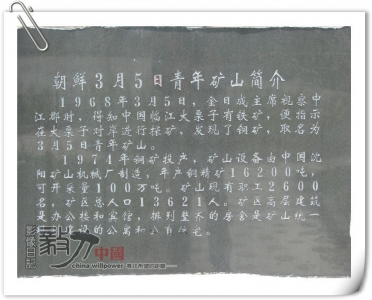 朝鲜3月5日青年矿山简介
1968年3月5日，金日成主席视察中
江郡时，得知中国临江大栗子有铁矿，指示
在大栗子对岸进行探矿，发现了铜矿，便取名为
3月5日青年矿山。
1974年铜矿投产，矿山设备由中国沈
阳矿山机械厂制造，年产铜精矿16200吨，
可开采量100万吨。矿山现有职工2600
名，矿区总人口13621人。矿区高层建筑
是办公楼和宾馆，排列整齐的房舍是矿山统一
建设的公寓和
影像日记
毅力
中國
china willpower